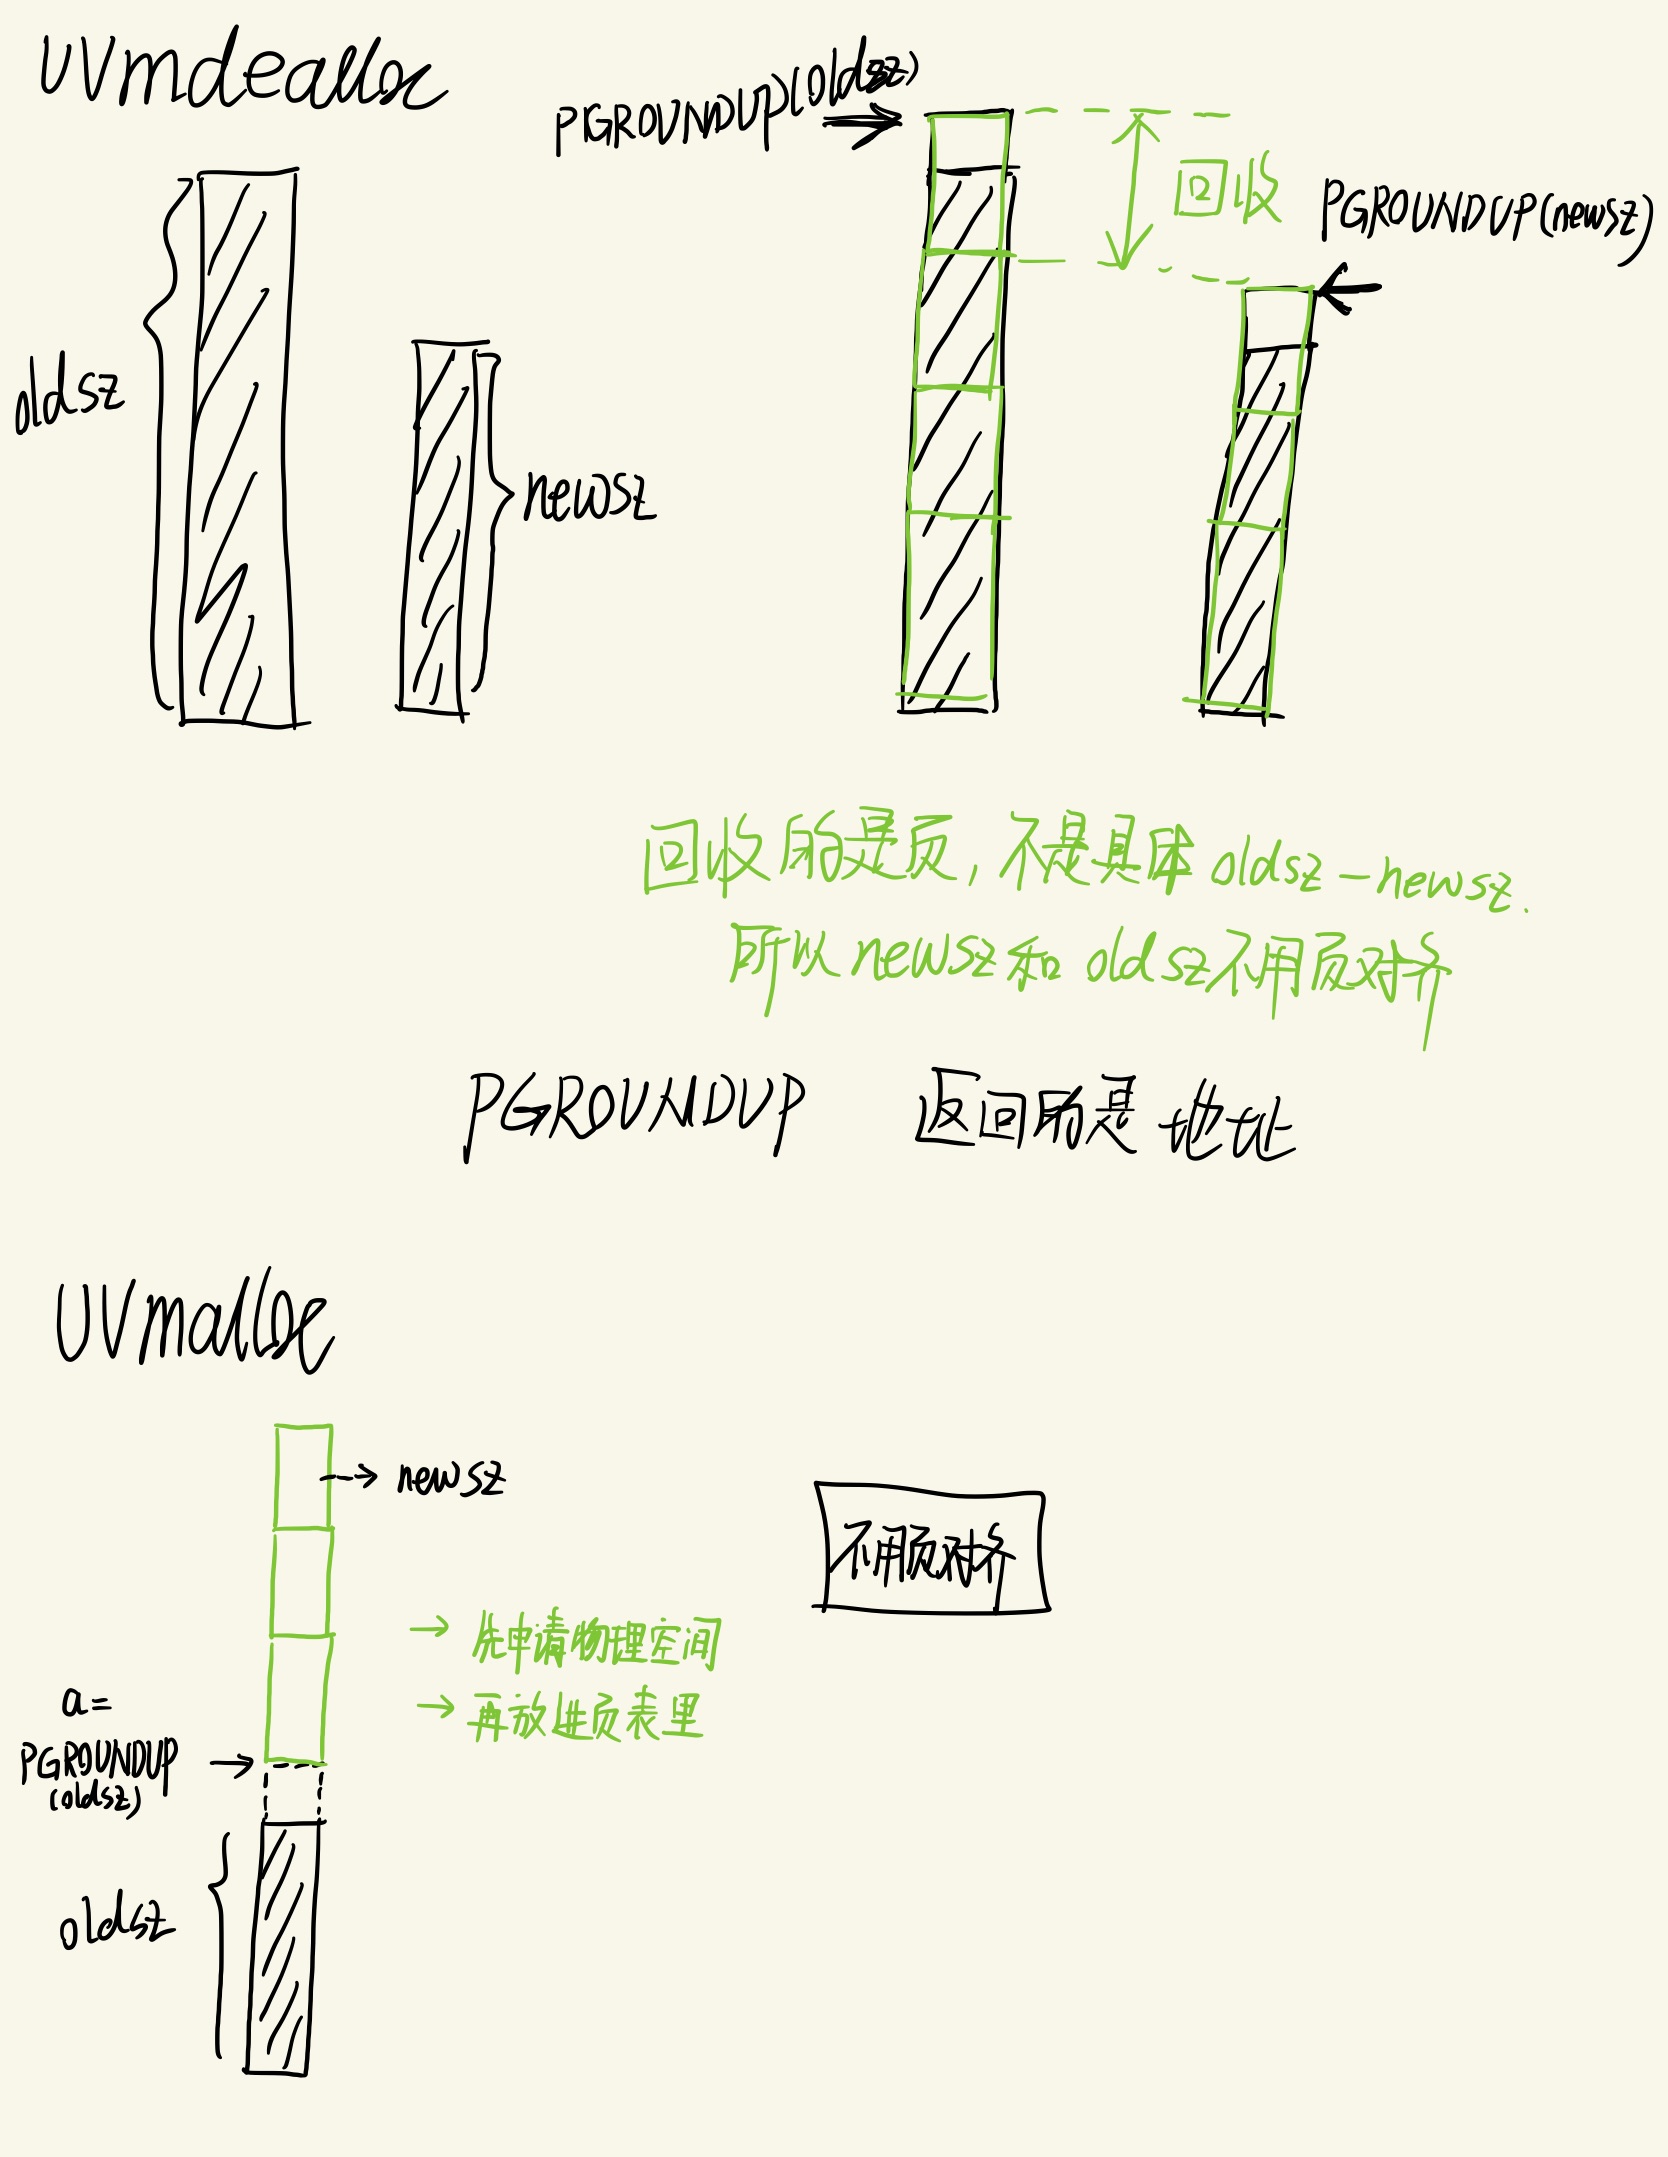 uvmdealloc
PGROUNDUP(oldsz)
回收
PGROUNDUP(newsz)
oldsz
newsz
回收的是页,不是具体oldsz-newsz.
所以newsz和oldsz不用页对齐
PGROUNDUP 返回的是地址
uvmalloc
newsz
不用页对齐
→ 先申请物理空间
→ 再放进页表里
a=
PGROUNDUP
(oldsz)
oldsz